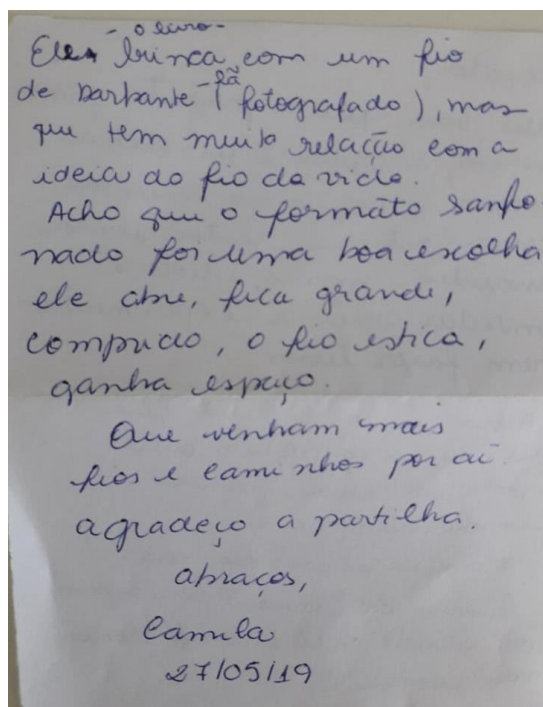 - o livro -
Ele brinca com um fio
- lã
de barbante (fotografado), mas
que tem muita relação com a
ideia do fio da vida.
Acho que o formato sanfo-
nado foi uma boa escolha
ele abre, fica grande,
comprido, o fio estica,
ganha espaço.
Que venham mais
fios e caminhos por aí.
agradeço a partilha.
abraços,
Camila
27/05/19